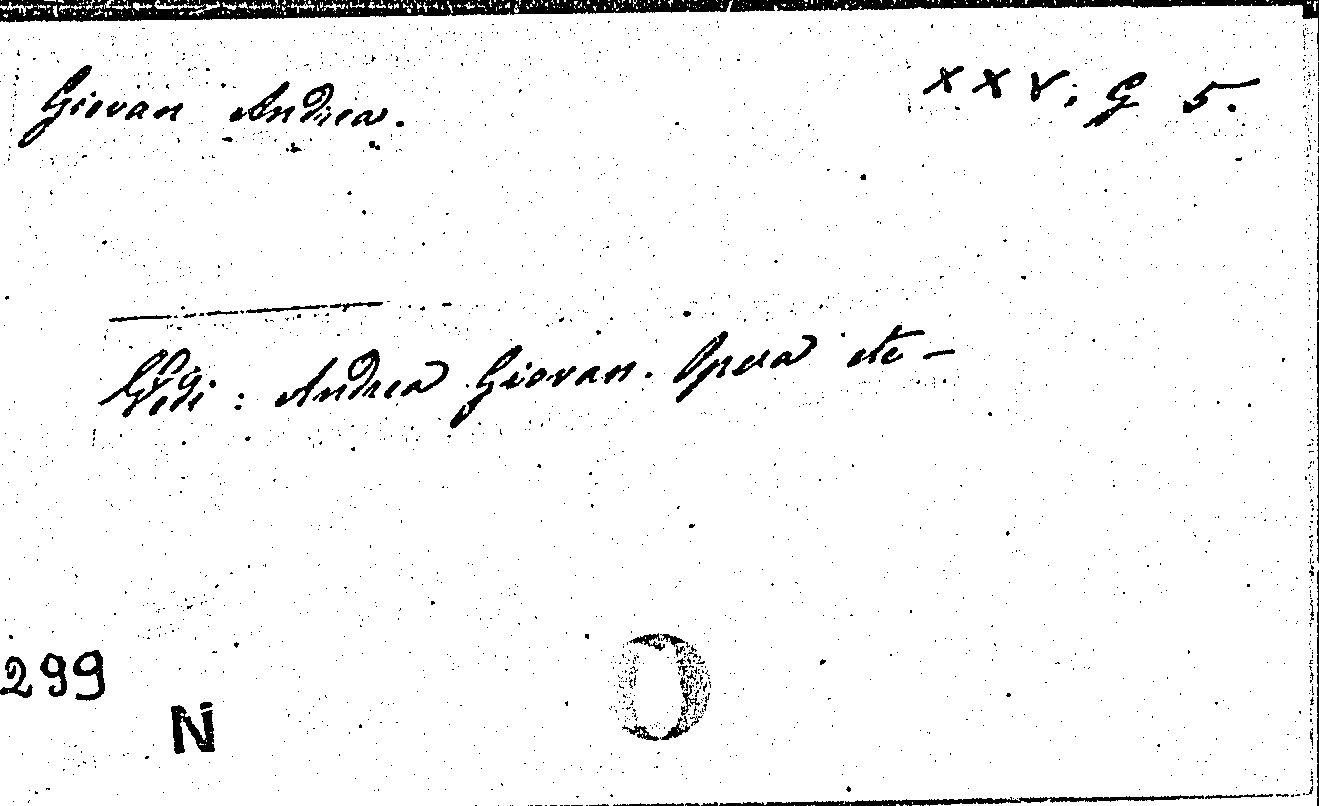 Giovan Andrea. XXV. G 5.
Vedi: Andrea Giovan. Opera etc -
299
N